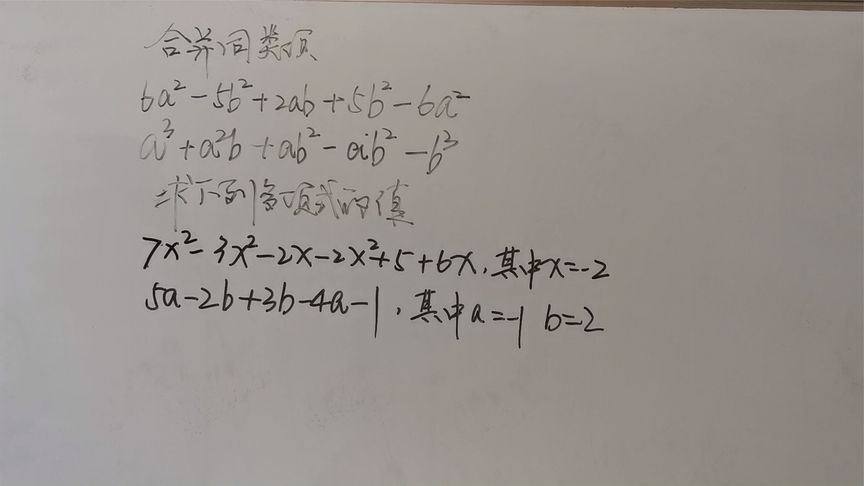 合并同类项
6a²-5b²+2ab+5b²-6a²
a³+a²b+ab²-ab²-b³
求下列多项式的值
7x²-3x²-2x-2x²+5+6x，其中x=-2
5a-2b+3b-4a-1，其中a=-1 b=2